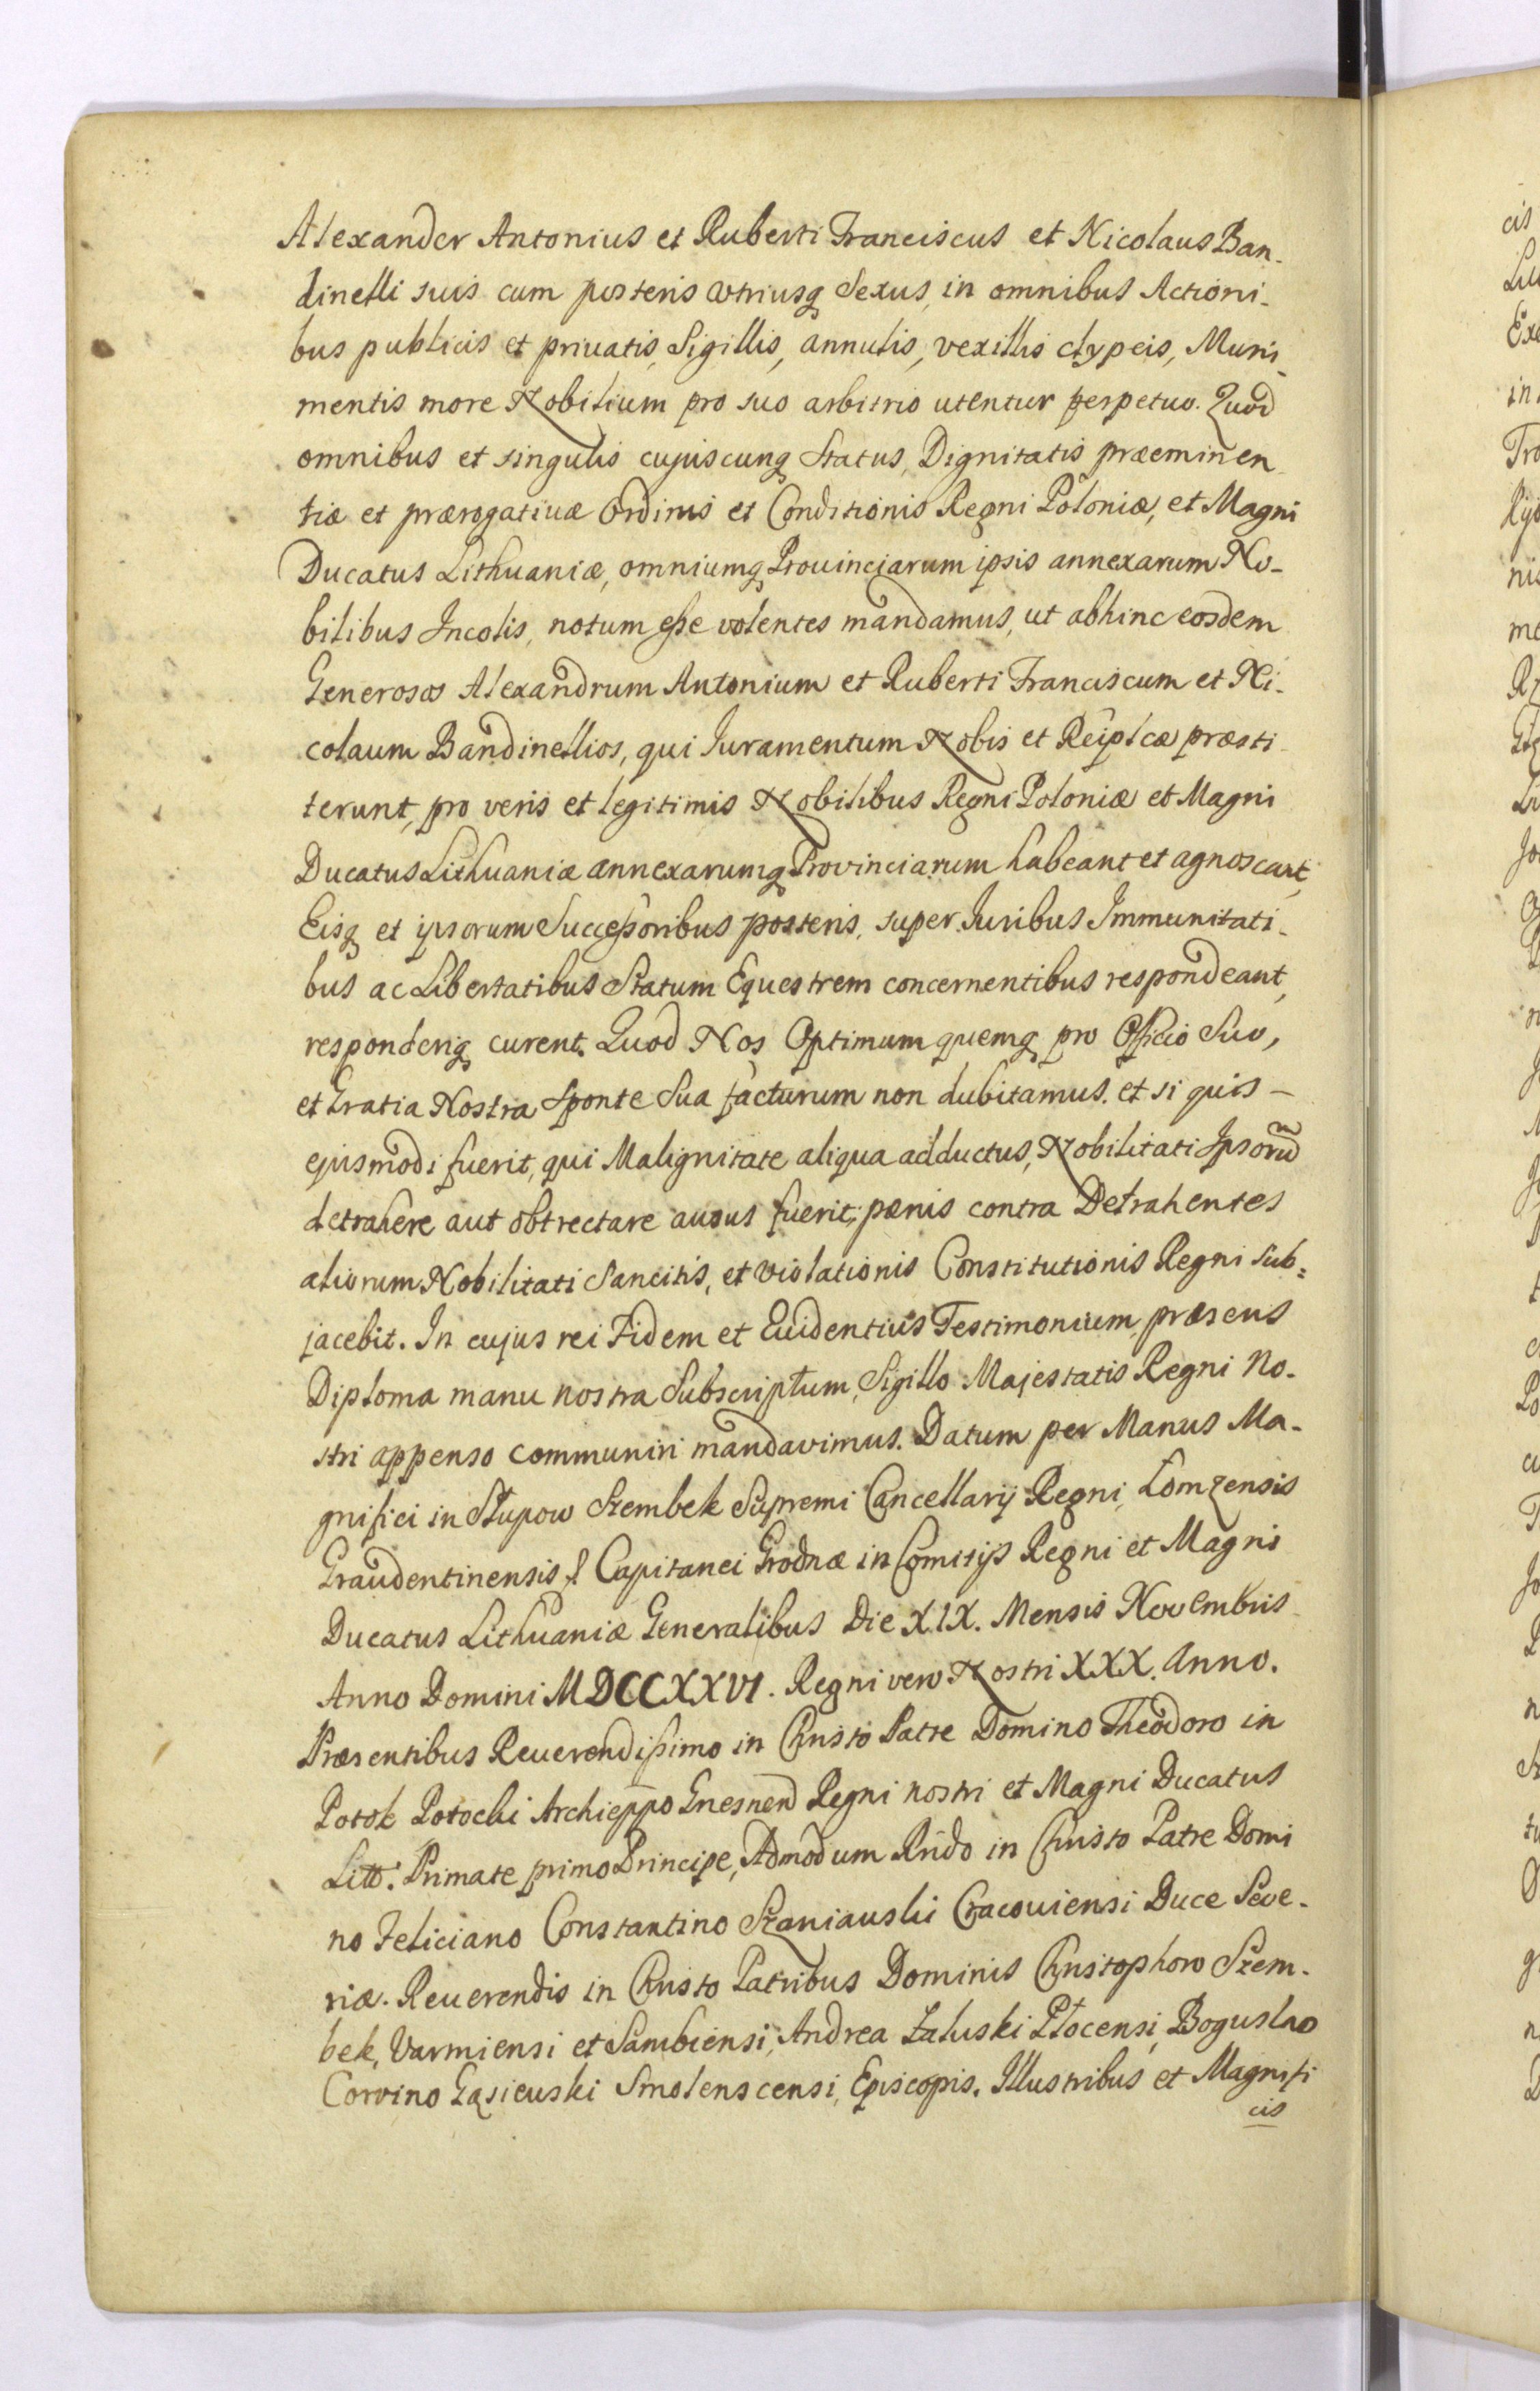 Alexander Antonius et Ruberti Franciscus et Nicolaus Ban-
dinelli suis cum posteris utriusq Sexus, in omnibus Actioni-
bus publicis et priuatis, Sigillis, annulis, vexillis clypeis, Muni-
mentis more Nobilium pro suo arbitrio utentur perpetuo. Quod
omnibus et singulis cujuscunq Status, Dignitatis præeminen
tiæ et prærogatiuæ Ordinis et Conditionis Regni Poloniæ, et Magni
Ducatus Lithuaniæ, omniumq Prouinciarum ipsis annexarum No-
bilibus Incolis, notum esse volentes mandamus, ut abhinc eosdem
Generosos Alexandrum Antonium et Ruberti Franciscum et Ni-
colaum Bandinellios, qui Iuramentum Nobis et Reiplcæ præsti-
terunt, pro veris et legitimis Nobilibus Regni Poloniæ et Magni
Ducatus Lithuaniæ annexarumq Provinciarum habeant et agnoscant,
Eisq et ipsorum Successoribus posteris, super Iuribus Immunitati-
bus ac Libertatibus Statum Equestrem concernentibus respondeant,
responderiq curent. Quod Nos Optimum quemq pro Officio Suo,
et Gratia Nostra Sponte Sua facturum non dubitamus. et si quis –
ejusmodi fuerit, qui Malignitate aliqua adductus, Nobilitati Ipsorũ
detrahere aut obtrectare ausus fuerit; pœnis contra Detrahentes
aliorum Nobilitati Sancitis, et violationis Constitutionis Regni sub=
jacebit. In cujus rei Fidem et Euidentius Testimonium, præsens
Diploma manu nostra Subscriptum, Sigillo Majestatis Regni No-
stri appenso communiri mandavimus. Datum per Manus Ma-
gnifici in Słupow Szembek Supremi Cancellarij Regni, Łomzensis
Graudentinensis & Capitanei Grodnæ in Comitijs Regni et Magni
Ducatus Lithuaniæ Generalibus Die XIX. Mensis Novembris
Anno Domini MDCCXXVI. Regni vero Nostri XXX. Anno.
Præsentibus Reuerendissimo in Christo Patre Domino Theodoro in
Potok Potocki Archieppo Gnesnen Regni nostri et Magni Ducatus
Litt. Primate primo Principe, Admodum Rndo in Christo Patre Domi
no Feliciano Constantino Szaniauski Cracouiensi Duce Seve-
riæ. Reuerendis in Christo Patribus Dominis Christophoro Szem-
bek, Varmiensi et Sambiensi, Andrea Załuski Płocensi, Boguslao
Corvino Gąsieuski Smolenscensi, Episcopis. Illustribus et Magnifi
cis